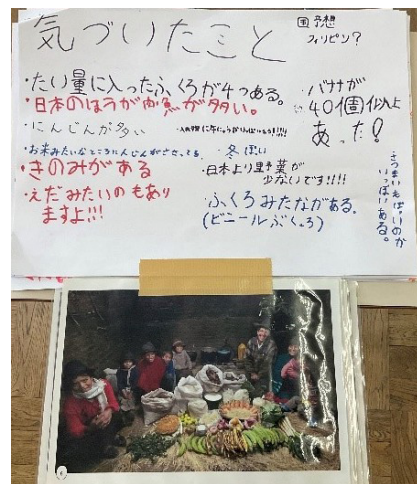 気づいたこと
国 予想
フィリピン?
・たい量に入ったふくろが4つある。
・日本のほうが肉魚が多い。
・にんじんが多い
・お米みたいなところににんじんがささってる
・きのみがある
・えだみたいのもあり
ますよ!!!
・バナナが
40個以上
あった!
・冬ぽい
・日本より野菜が
少ないです!!!!
・ふくろみたながある。
(ビニールぶくろ)
・さつまいもぽいのが
いっぱいある。